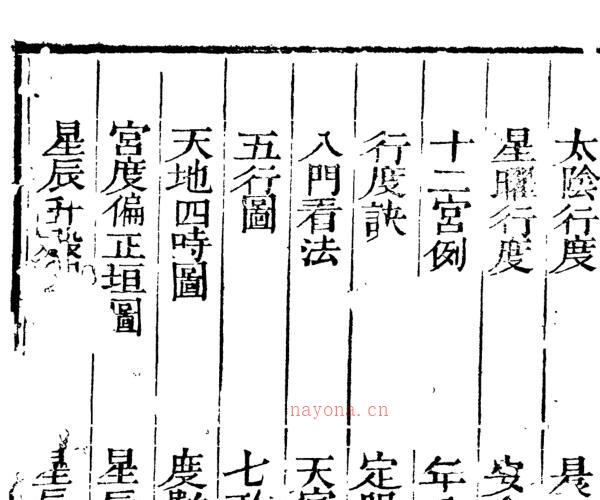 太陰行度
星曜行度
十二宮例
行度訣
八門看法
五行圖
天地四時圖
宮度偏正垣圖
星辰升殿
安
年
定
天官
七政
度數
星辰
星辰
nayona.cn